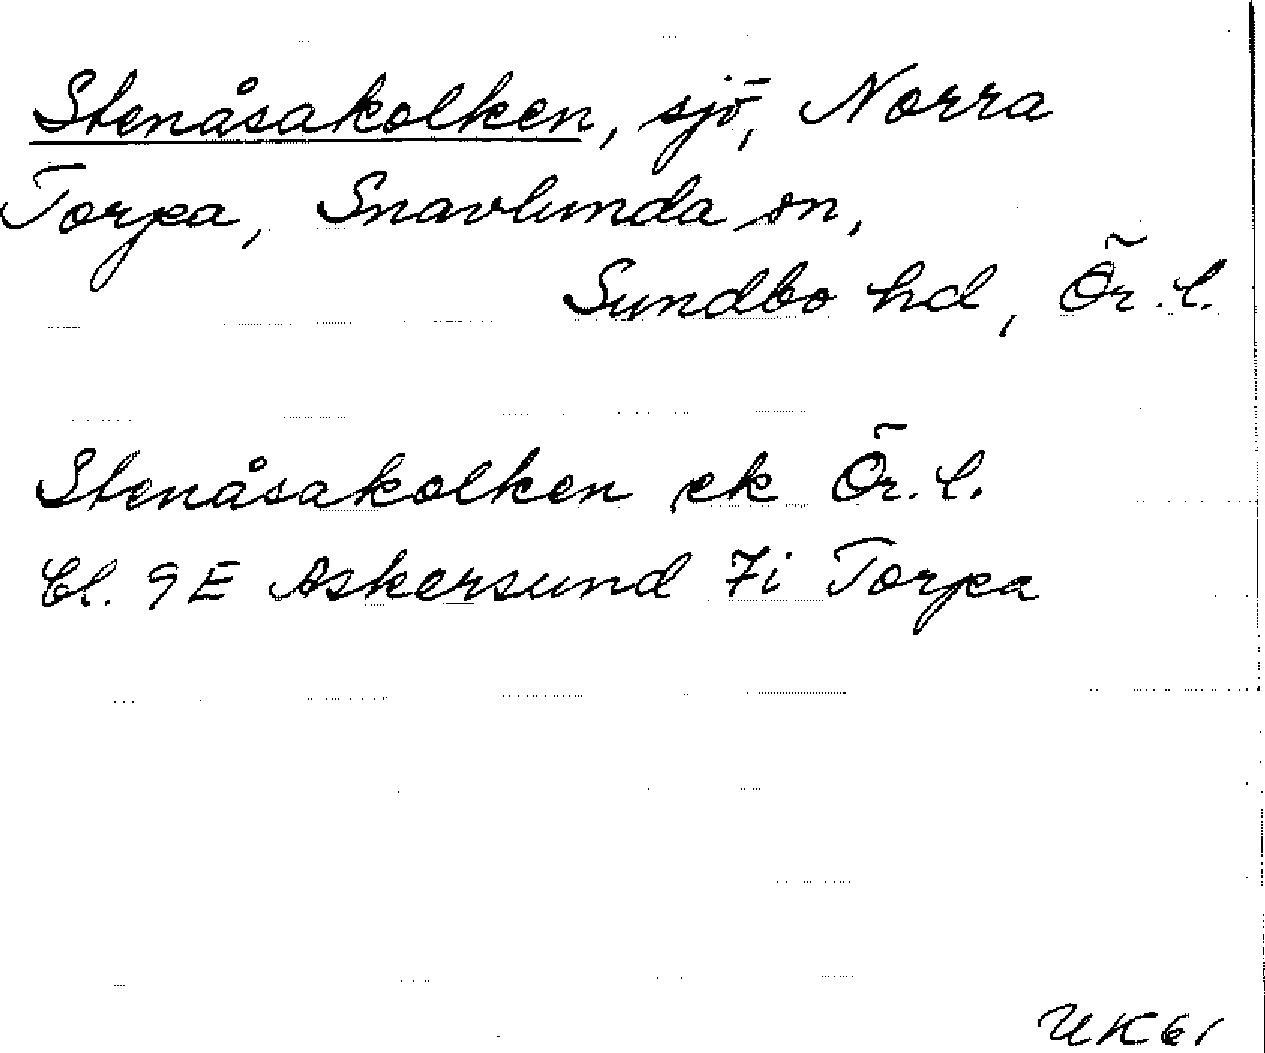 Stenåsakolken, sjö, Norra
Torpa, Snavlunda sn,
Sundbo hd, Ör. l.
Stenåsakolken ek Ör. l.
Bl. 9E Askersund 7i Torpa
UK 61